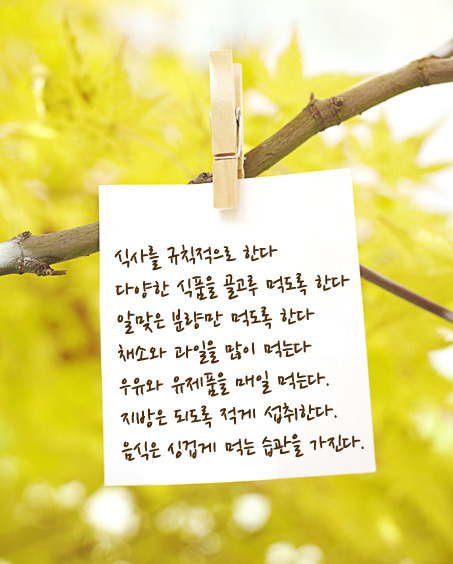 식사를 규칙적으로 한다
다양한 식품을 골고루 먹도록 한다
알맞은 분량만 먹도록 한다
채소와 과일을 많이 먹는다
우유와 유제품을 매일 먹는다.
지방은 되도록 적게 섭취한다.
음식은 싱겁게 먹는 습관을 가진다.